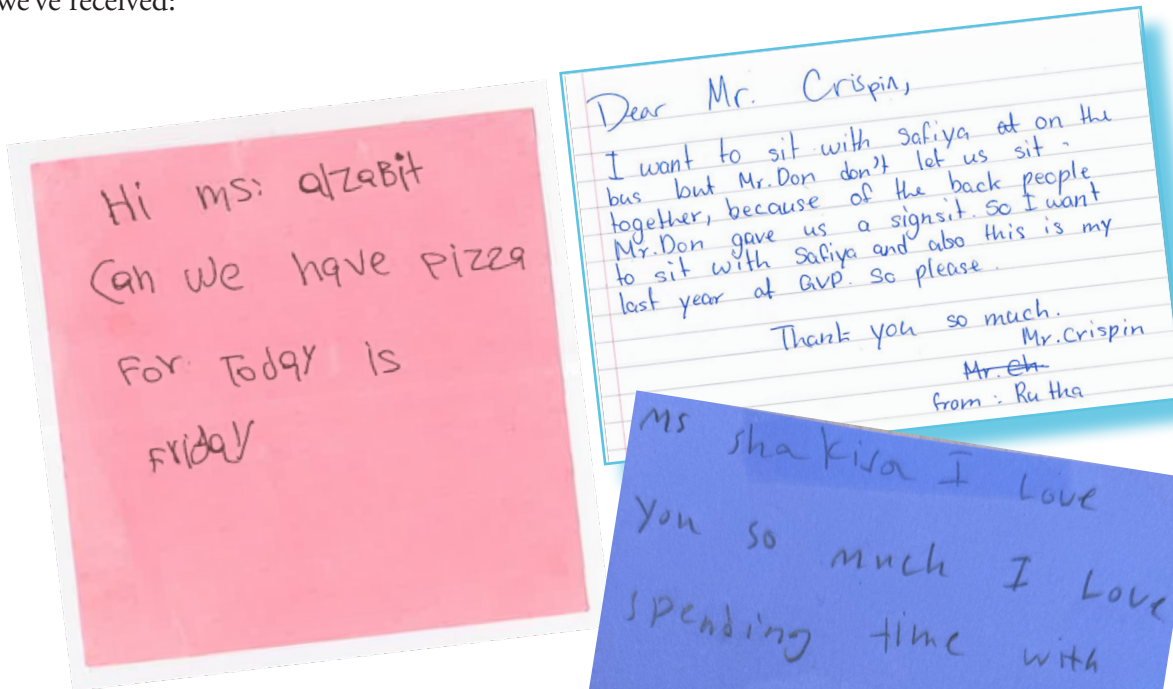 we've received:
Hi ms: alzaBit
Can we have pizza
For Today is
Friday
Dear Mr. Crispin,
I want to sit with Safiya at on the
bus but Mr. Don don't let us sit
together, because of the back people
Mr. Don gave us a signsit. So I want
to sit with Safiya and also this is my
last year at GVP. So please.
Thank you so much.
Mr. Crispin
Mr. Ch
from: Rutha
Ms shakira I Love
You so much I Love
spending time with